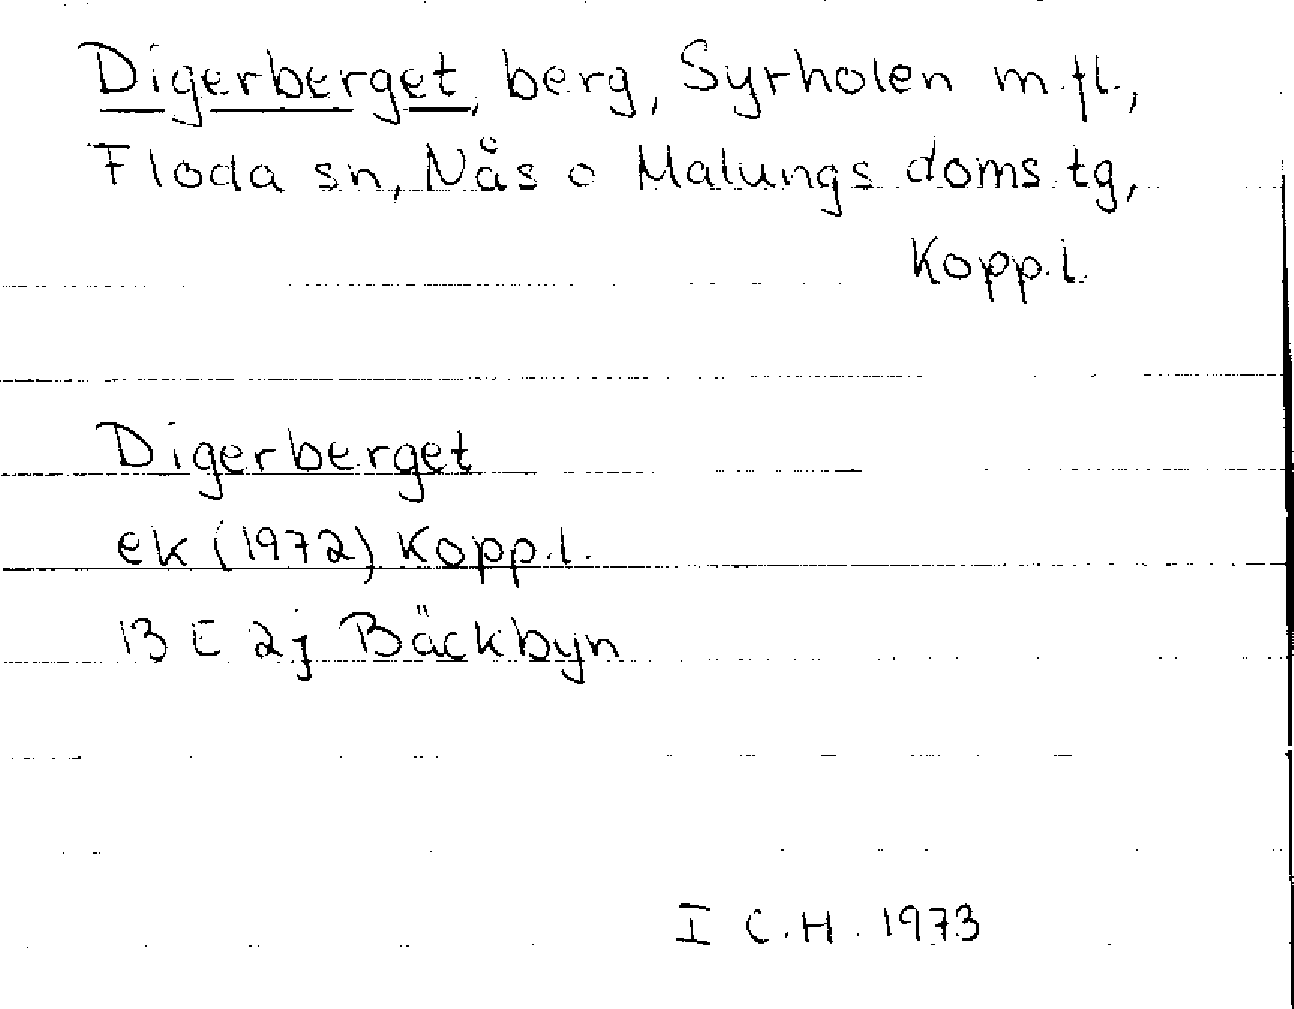 Digerberget, berg, Syrholen m.fl.,
Floda sn, Nås o Malungs doms.tg,
Kopp.l.
Digerberget
ek (1972) Kopp.l.
13 E 2j Bäckbyn
I C.H. 1973